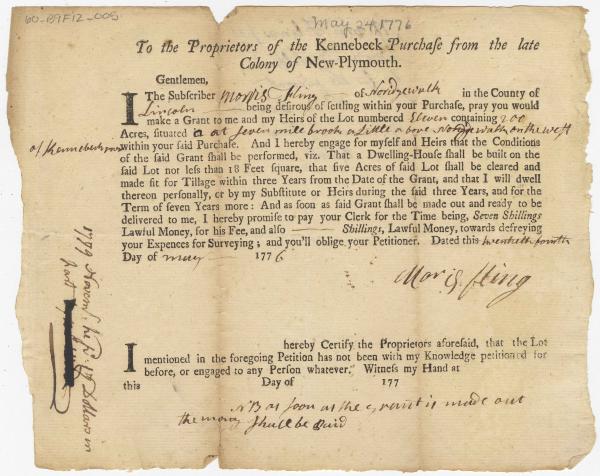 60-B9F12-005
May 24, 1776
To the Proprietors of the Kennebeck Purchaſe from the late
Colony of New-Plymouth.
Gentlemen,
I The Subſcriber Morris Fling of Noridgewalk in the County of
Lincoln being deſirous of ſettling within your Purchaſe, pray you would
make a Grant to me and my Heirs of the Lot numbered Eleven containing 200
Acres, ſituated at ſeven mile brook a Little above Noridgewalk on the weſt
of Kennebeck
within your ſaid Purchaſe. And I hereby engage for myſelf and Heirs that the Conditions
of the ſaid Grant ſhall be performed, viz. That a Dwelling-Houſe ſhall be built on the
ſaid Lot not leſs than 18 Feet ſquare, that five Acres of ſaid Lot ſhall be cleared and
made fit for Tillage within three Years from the Date of the Grant, and that I will dwell
thereon perſonally, or by my Subſtitute or Heirs during the ſaid three Years, and for the
Term of ſeven Years more: And as ſoon as ſaid Grant ſhall be made out and ready to be
delivered to me, I hereby promiſe to pay your Clerk for the Time being, Seven Shillings
Lawful Money, for his Fee, and alſo Shillings, Lawful Money, towards defreying
your Expences for Surveying; and you'll oblige your Petitioner. Dated this twenteth fourth
Day of may 1776
Moris fling
I hereby Certify the Proprietors aforeſaid, that the Lot
mentioned in the foregoing Petition has not been with my Knowledge petitioned for
before, or engaged to any Perſon whatever. Witneſs my Hand at
this Day of 177
NB as soon as the grant is made out
the mony ſhall be paid
1779 Dollars in
part